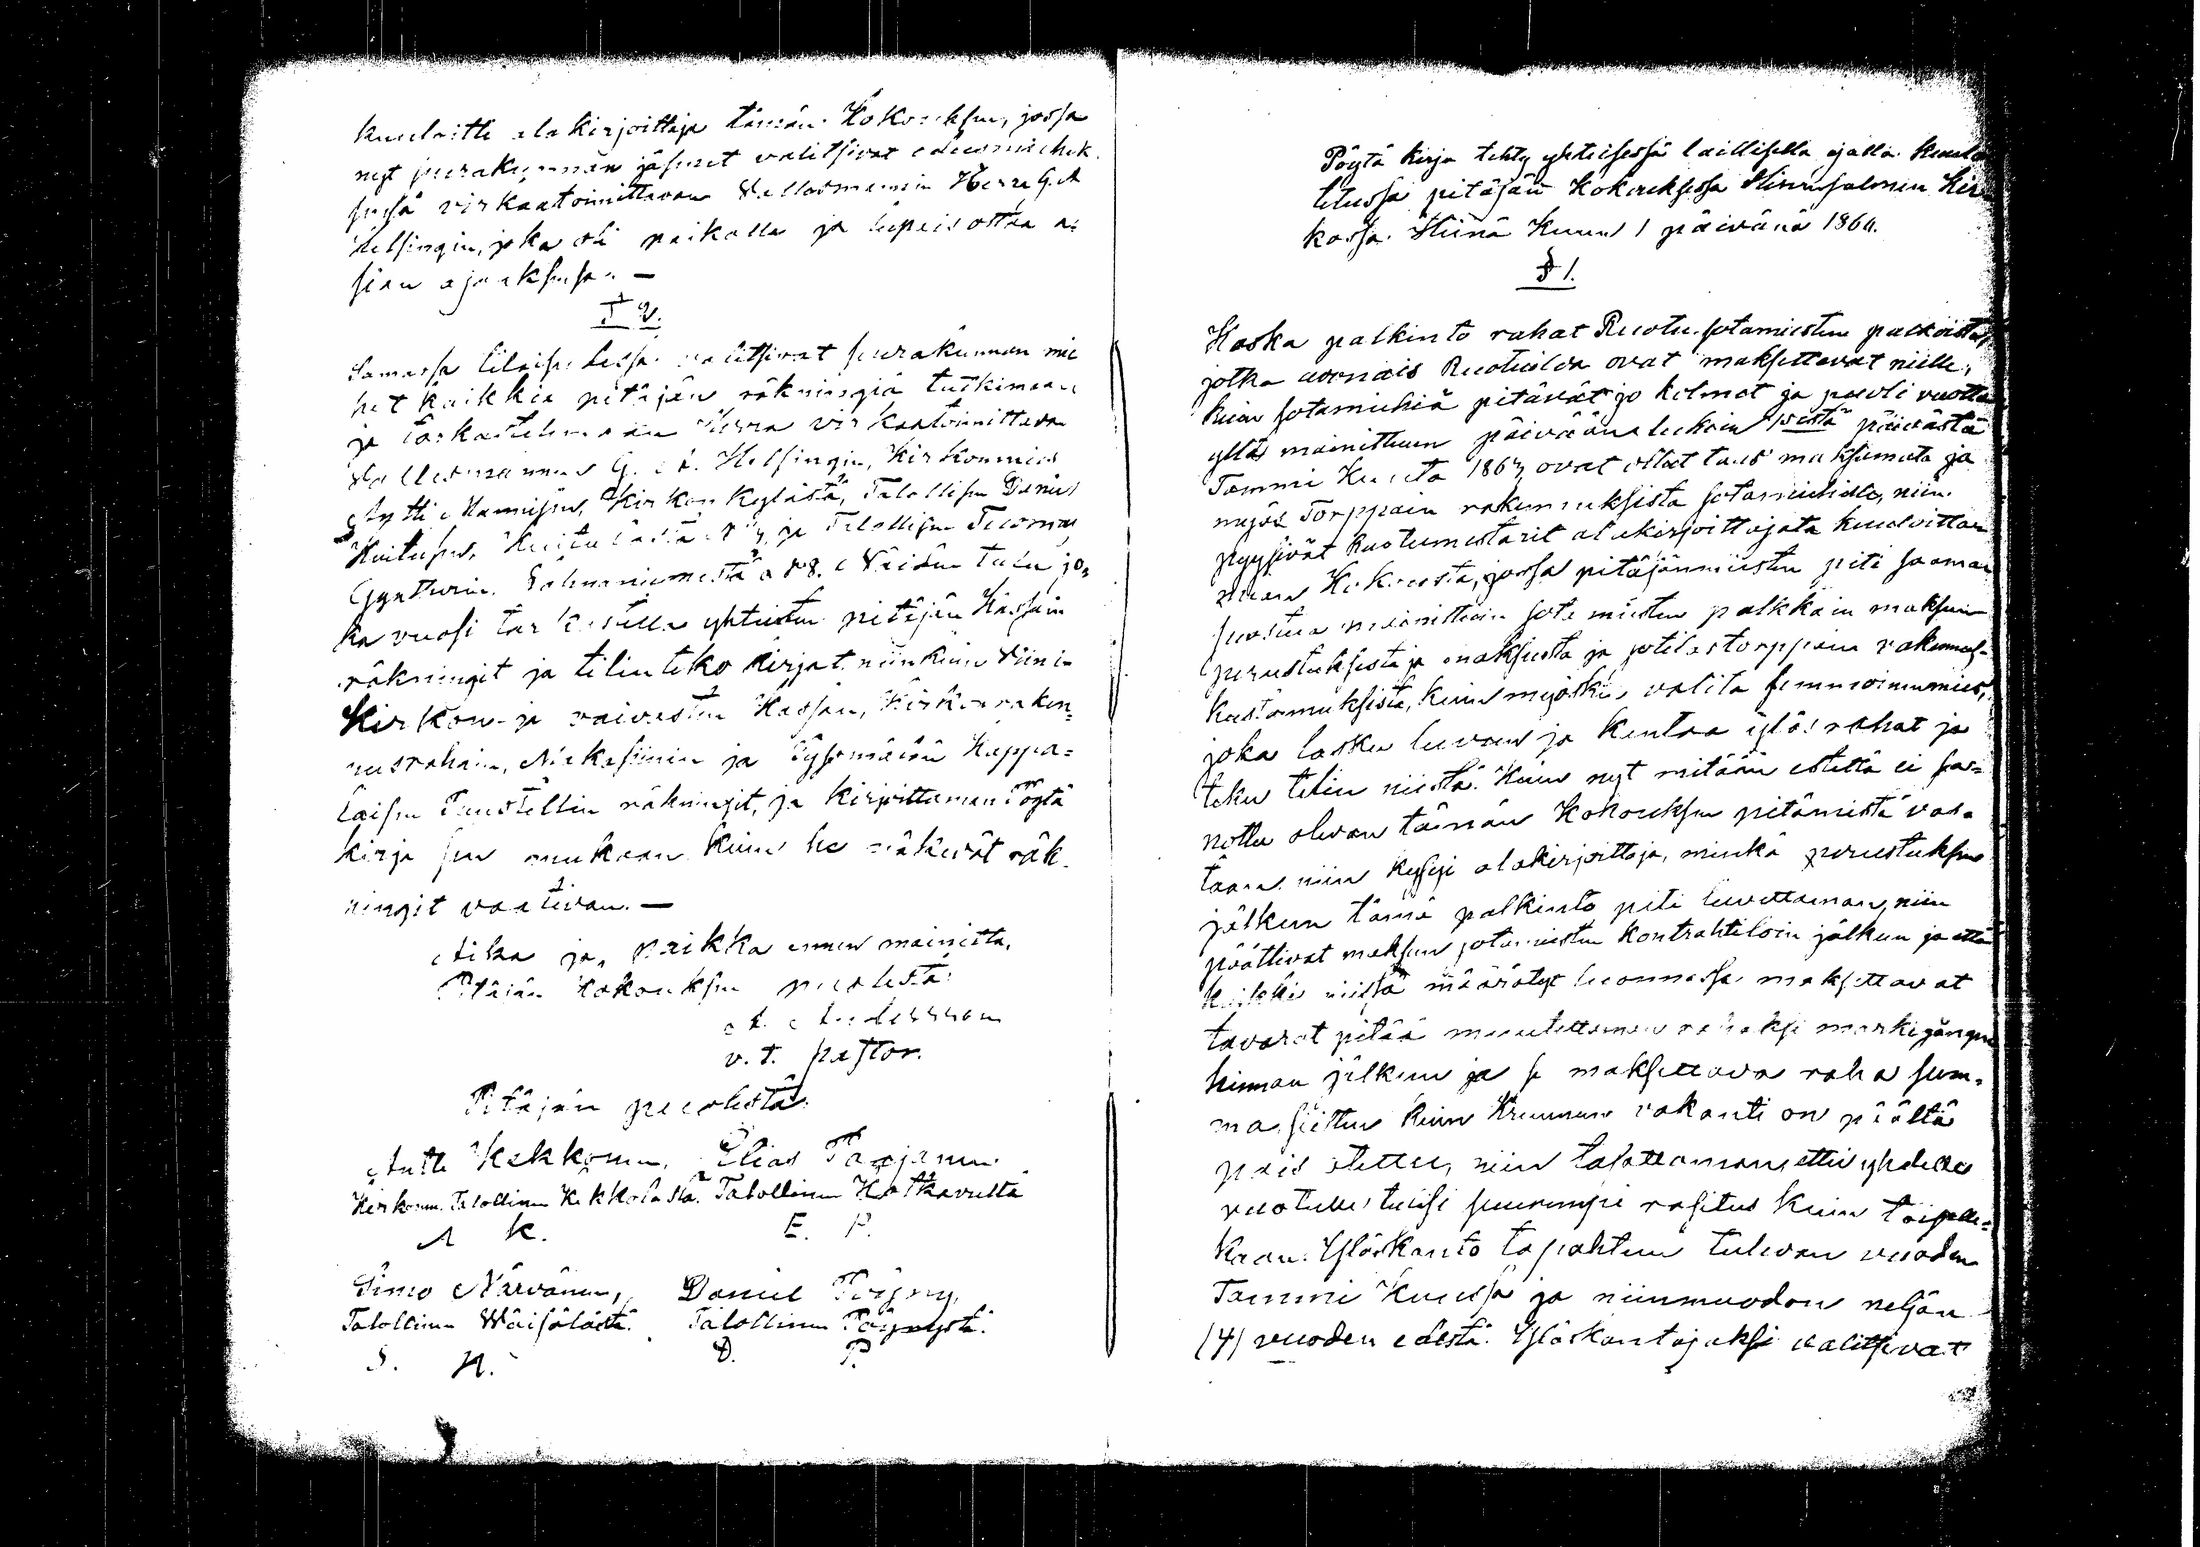 kuuloitti alakirjoittaja tämän Kokouksen, jossa
nyt seurakunnan jäsenet valitsivat edusmiehek
sensä virkaatoimittavan Vallesmannin Herra G. A
Helsingin, joka oli paikalla ja lupais ottaa a:
sian ajaaksensa. —
§ 2.
Samassa tilaisuudessa valitsivat seurakunnan mie
het kaikkia pitäjän räkningiä tutkimaan
ja tarkastelemaan Herra virkaatoimittava
Vallesmannin G. A. Helsingin, Kirkonmies
Antti Hannisen, Kirkon Kylästä, Talollisen Daniel
Huitusen, ja Talollisen Tuomas
Gyntherin. 8. Näiden tulee jo,
ka vuosi tarkastella yhteisten pitäjän Kassain
räkningit ja tilinteko kirjat niinkuin Viinin
Kirkon- ja vaivasten Kassan, Kirkonraken,
nusrahain, ja Kappa=
laisen räkningit, ja kirjoittaman Pöytä
kirja sen mukaan kuin he näkevät räk
ningit vaativan. —
Aika ja paikka ennen mainittu.
Pitäjän Kokouksen puolesta
A. Andersson
v. t. pastor.
Pitäjän puolesta:
Antti Kekkonen, Elias Parjanen
Kirkonm. Talollinen Kekkolasta. Talollinen Hatkavulta
A K. E. P.
Simo Närvänen, Daniel Pöyny,
Talollinen Wäisälästä. Talollinen
S. N. D. P.
Pöytä kirja tehty yhteisessä laillisella ajalla kuulu
tetussa pitäjän Kokouksessa Kir
kossa. Heinä Kuun 1 päivänä 1864.
§ 1.
Koska palkinto rahat Ruotu sotamiesten palkoista,
jotka avonais Ruotuilda ovat maksettavat niille,
kuin sotamiehiä pitävät jo kolmet ja puoli vuotta
yllä mainittuun päivään lukein 15estä päivästä
Tammi Kuuta 1861 ovat olleet taas maksamata ja
myös Torppain rakennuksista sotamiehille, niin
pyysivät Ruotumestarit alakirjoittajata kuuloittaa
Kokousta, jossa pitäjänmiesten piti saaman
suostua mainittuin sota miesten palkkain maksun
perustuksesta ja maksusta ja sotilastorppain rakennus-
kustannuksista, kuin myöskin valita semmoinen mies,
joka laskee luvun ja kantaa ylös rahat ja
tekee tilin niistä. Kuin nyt mitään estettä ei sa=
nottu olevan tämän Kokouksen pitämistä vas-
taan niin kysyi alakirjoittaja, minkä perustuksen
jälkeen tämä palkinto piti luvettaman, niin
päättivät maksun sotamiesten kontrahtiloin jälkeen ja että
kaikki niissä määrätyt luonnossa maksettavat
tavarat pitää muutettaman rahaksi markegången
hinnan jälkeen ja se maksettava raha sum-
ma sitten kuin Kruunun vakanti on päältä
pois otettu, niin tasattaman, ettei yhdelle
ruotulle tulisi suurempi rasitus kuin toiselle=
kaan. Ylöskanto tapahtuu tulevan vuoden
Tammi Kuussa ja niinmuodon neljän
(4) vuoden edestä. Ylöskantajaksi valitsivat